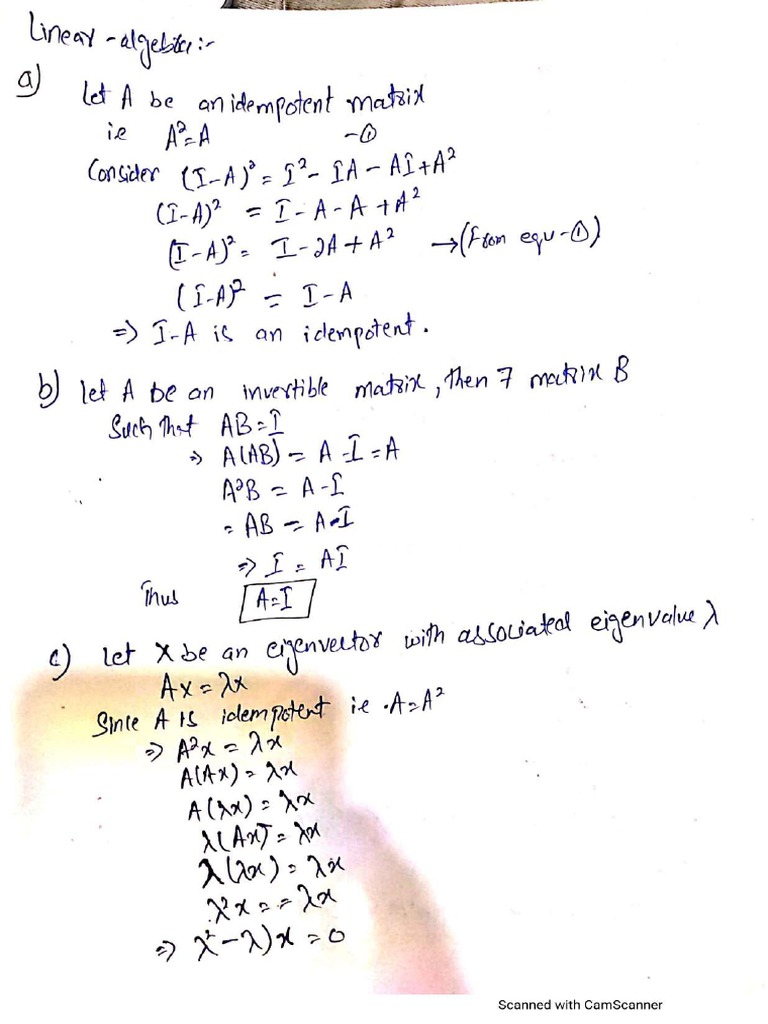 Linear-algebra:-
a) Let A be an idempotent matrix
ie A²=A -①
Consider (I-A)² = I² - IA - AI + A²
(I-A)² = I - A - A + A²
(I-A)² = I - 2A + A² → (from equ-①)
(I-A)² = I - A
⇒ I-A is an idempotent.
b) let A be an invertible matrix, then ∃ matrix B
Such that AB = I
⇒ A(AB) = A·I = A
A²B = A·I
= AB = A·I
⇒ I = AI
Thus A=I
c) Let x be an eigenvector with associated eigenvalue λ
Ax = λx
Since A is idempotent ie A=A²
⇒ A²x = λx
A(Ax) = λx
A(λx) = λx
λ(Ax) = λx
λ(λx) = λx
λ²x = = λx
⇒ λ²-λ)x = 0
Scanned with CamScanner